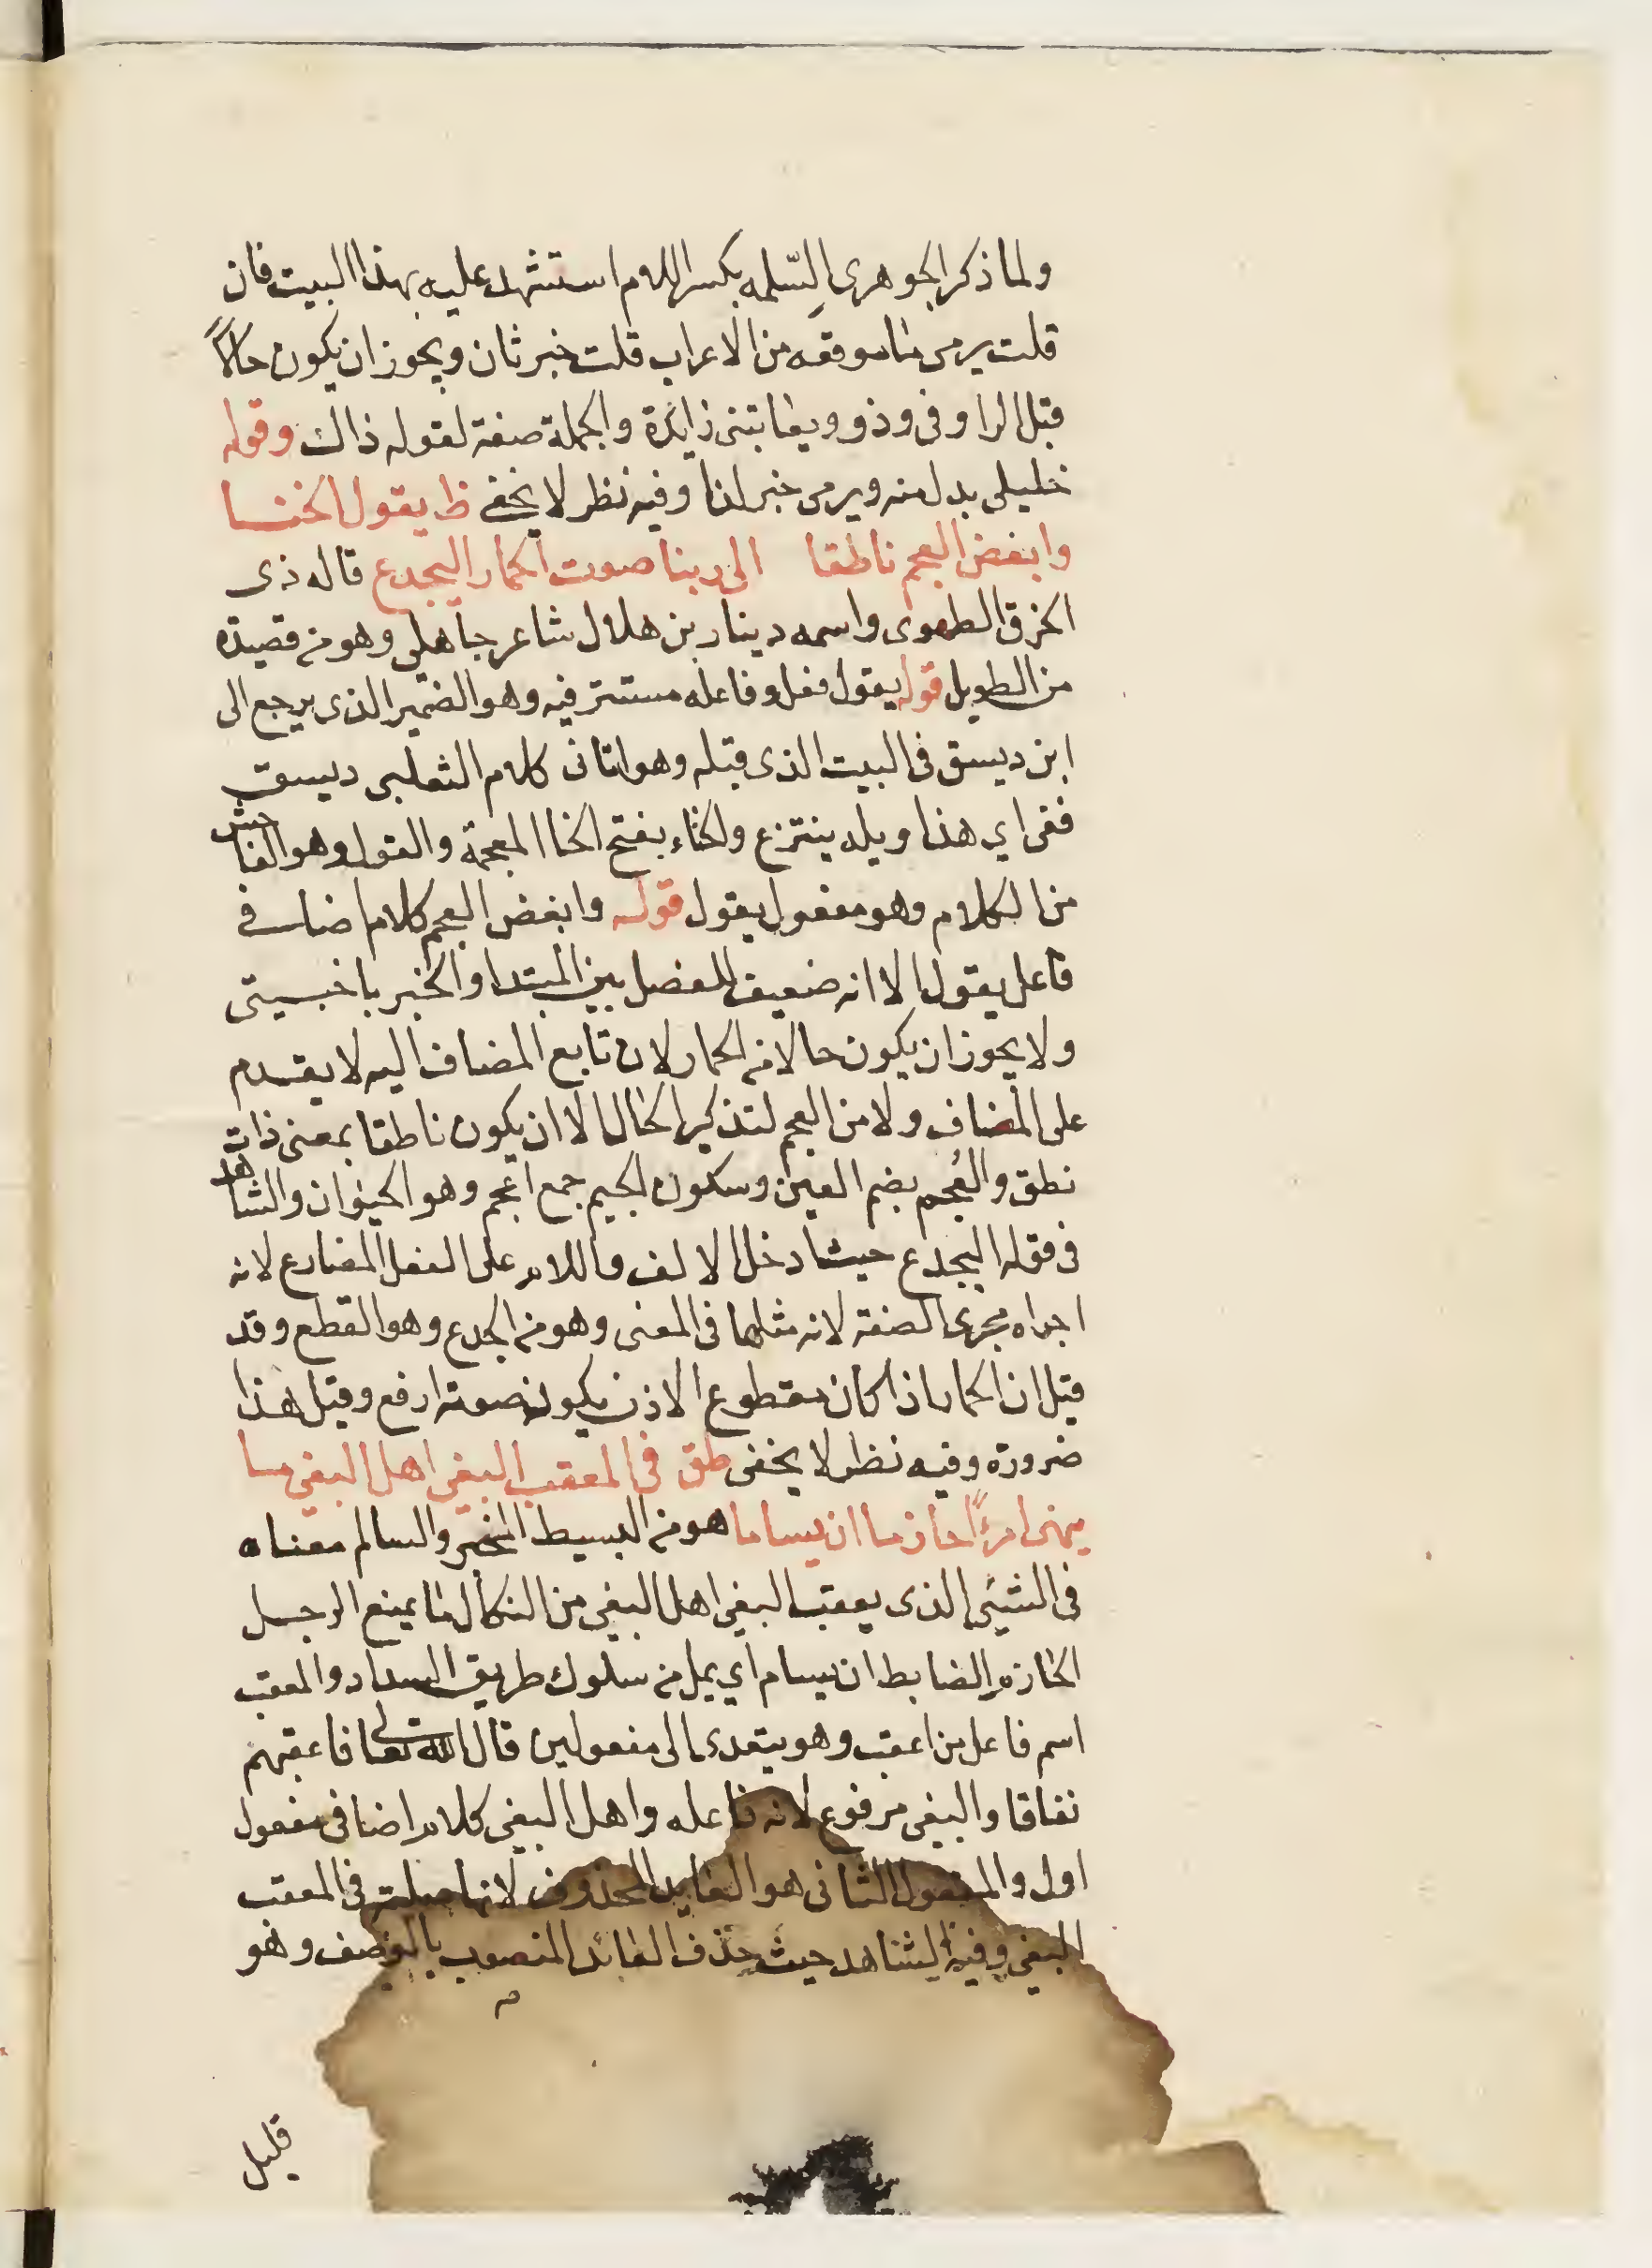 ولما ذكر الجوهرى السّلمه بكسر اللام استشهد عليه بهذا البيت فان
قلت يرمى ما موقعه من الاعراب قلت خبر ثان ويجوز ان يكون حالاً
قبل الواو فى وذو ويعاتبنى زايدة والجملة صفة لقوله ذاك وقوله
خليلى بدل منه ويرمى خبر لذا وفيه نظر لا يخفى ظ يقول الخنا
وابغض العجم ناطقا الى ربنا صوت الحمار اليجدع قاله ذى
الخرق الطهوى واسمه دينار بن هلال شاعر جاهلى وهو من قصيدة
من الطويل قوله يقول فعل وفاعله مستتر فيه وهو الضمير الذى يرجع الى
ابن ديسق فى البيت الذى قبله وهو اتانى كلام الثعلبى ديسق
ففى اي هذا ويله ينتزع والخناء بفتح الخاا المعجمة والقول وهو الفاحش
من الكلام وهو مفعول يقول قوله وابغض العجم كلام اضافى
فاعل يقول الا انه ضعيف للفصل بين المبتدا والخبر باخبيتى
ولا يجوز ان يكون حالا من الحمار لان تابع المضاف اليه لا يقدم
على المضاف ولا من العجم لتذكير الحال الا ان يكون ناطقا بمعنى ذات
نطق والعُجم بضم العين وسكون الجيم جمع اعجم وهو الحيوان والشاهد
فى قوله اليجدع حيث ادخل الالف واللام على الفعل المضارع لانه
اجراه مجرى الصفة لانه مثلها فى المعنى وهو من الجدع وهو القطع وقد
قيل ان الحمار اذا كان مقطوع الاذن يكون صوته ارفع وقيل هذا
ضرورة وفيه نظر لا يخفى طق فى المعقب البغى اهل البغى ما
ينهى امرءًا حازما ان يساما هو من البسيط المخبر والسالم معناه
فى الشئ الذى يعقب البغى اهل البغى من النكال ما يمنع الرجل
الحازم الضابط ان يسام اي يمل من سلوك طريق السداد والمعقب
اسم فاعل من اعقب وهو يتعدى الى مفعولين قال الله تعالى فاعقبهم
نفاقا والبغى مرفوع لانه فاعله واهل البغى كلام اضافى مفعول
اول والمفعول الثانى هو العايد المحذوف لانها صلة فى المعقب
البغى وفيه الشاهد حيث حذف العائد المنصوب بالوصف وهو
قليل